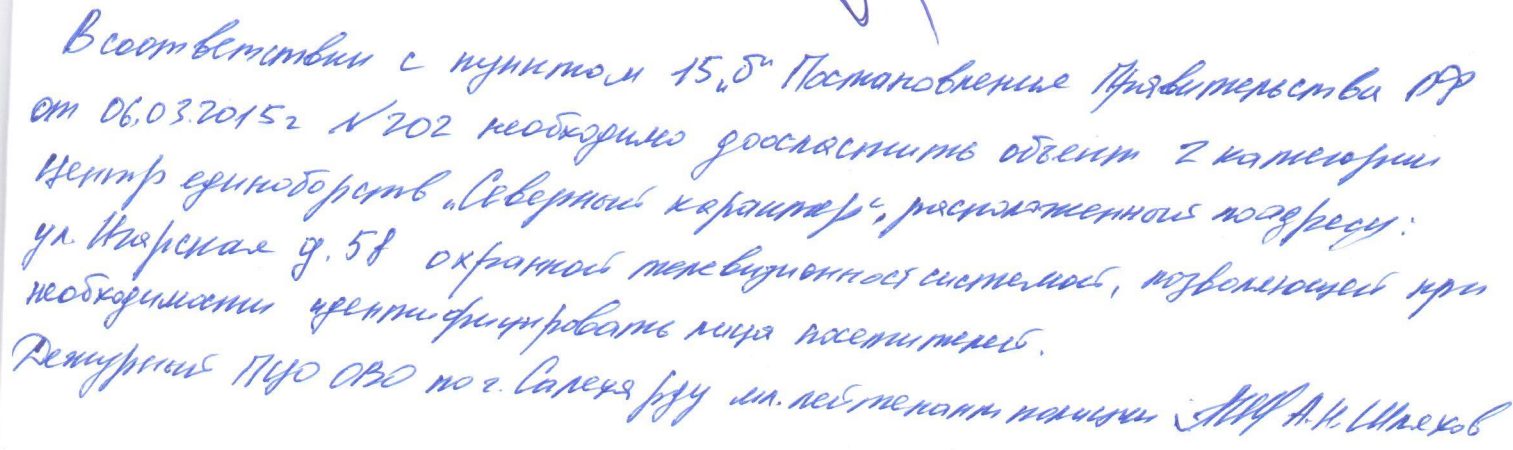 В соответствии с пунктом 15 „б“ Постановления Правительства РФ
от 06.03.2015г № 202 необходимо дооснастить объект 2 категории
Центр единоборств „Северный характер“, расположенный по адресу:
ул. Игарская д. 58 охранной телевизионной системой, позволяющей при
необходимости идентифицировать лица посетителей.
Дежурный ПЦО ОВО по г. Салехарду мл. лейтенант полиции А.Н. Шляхов